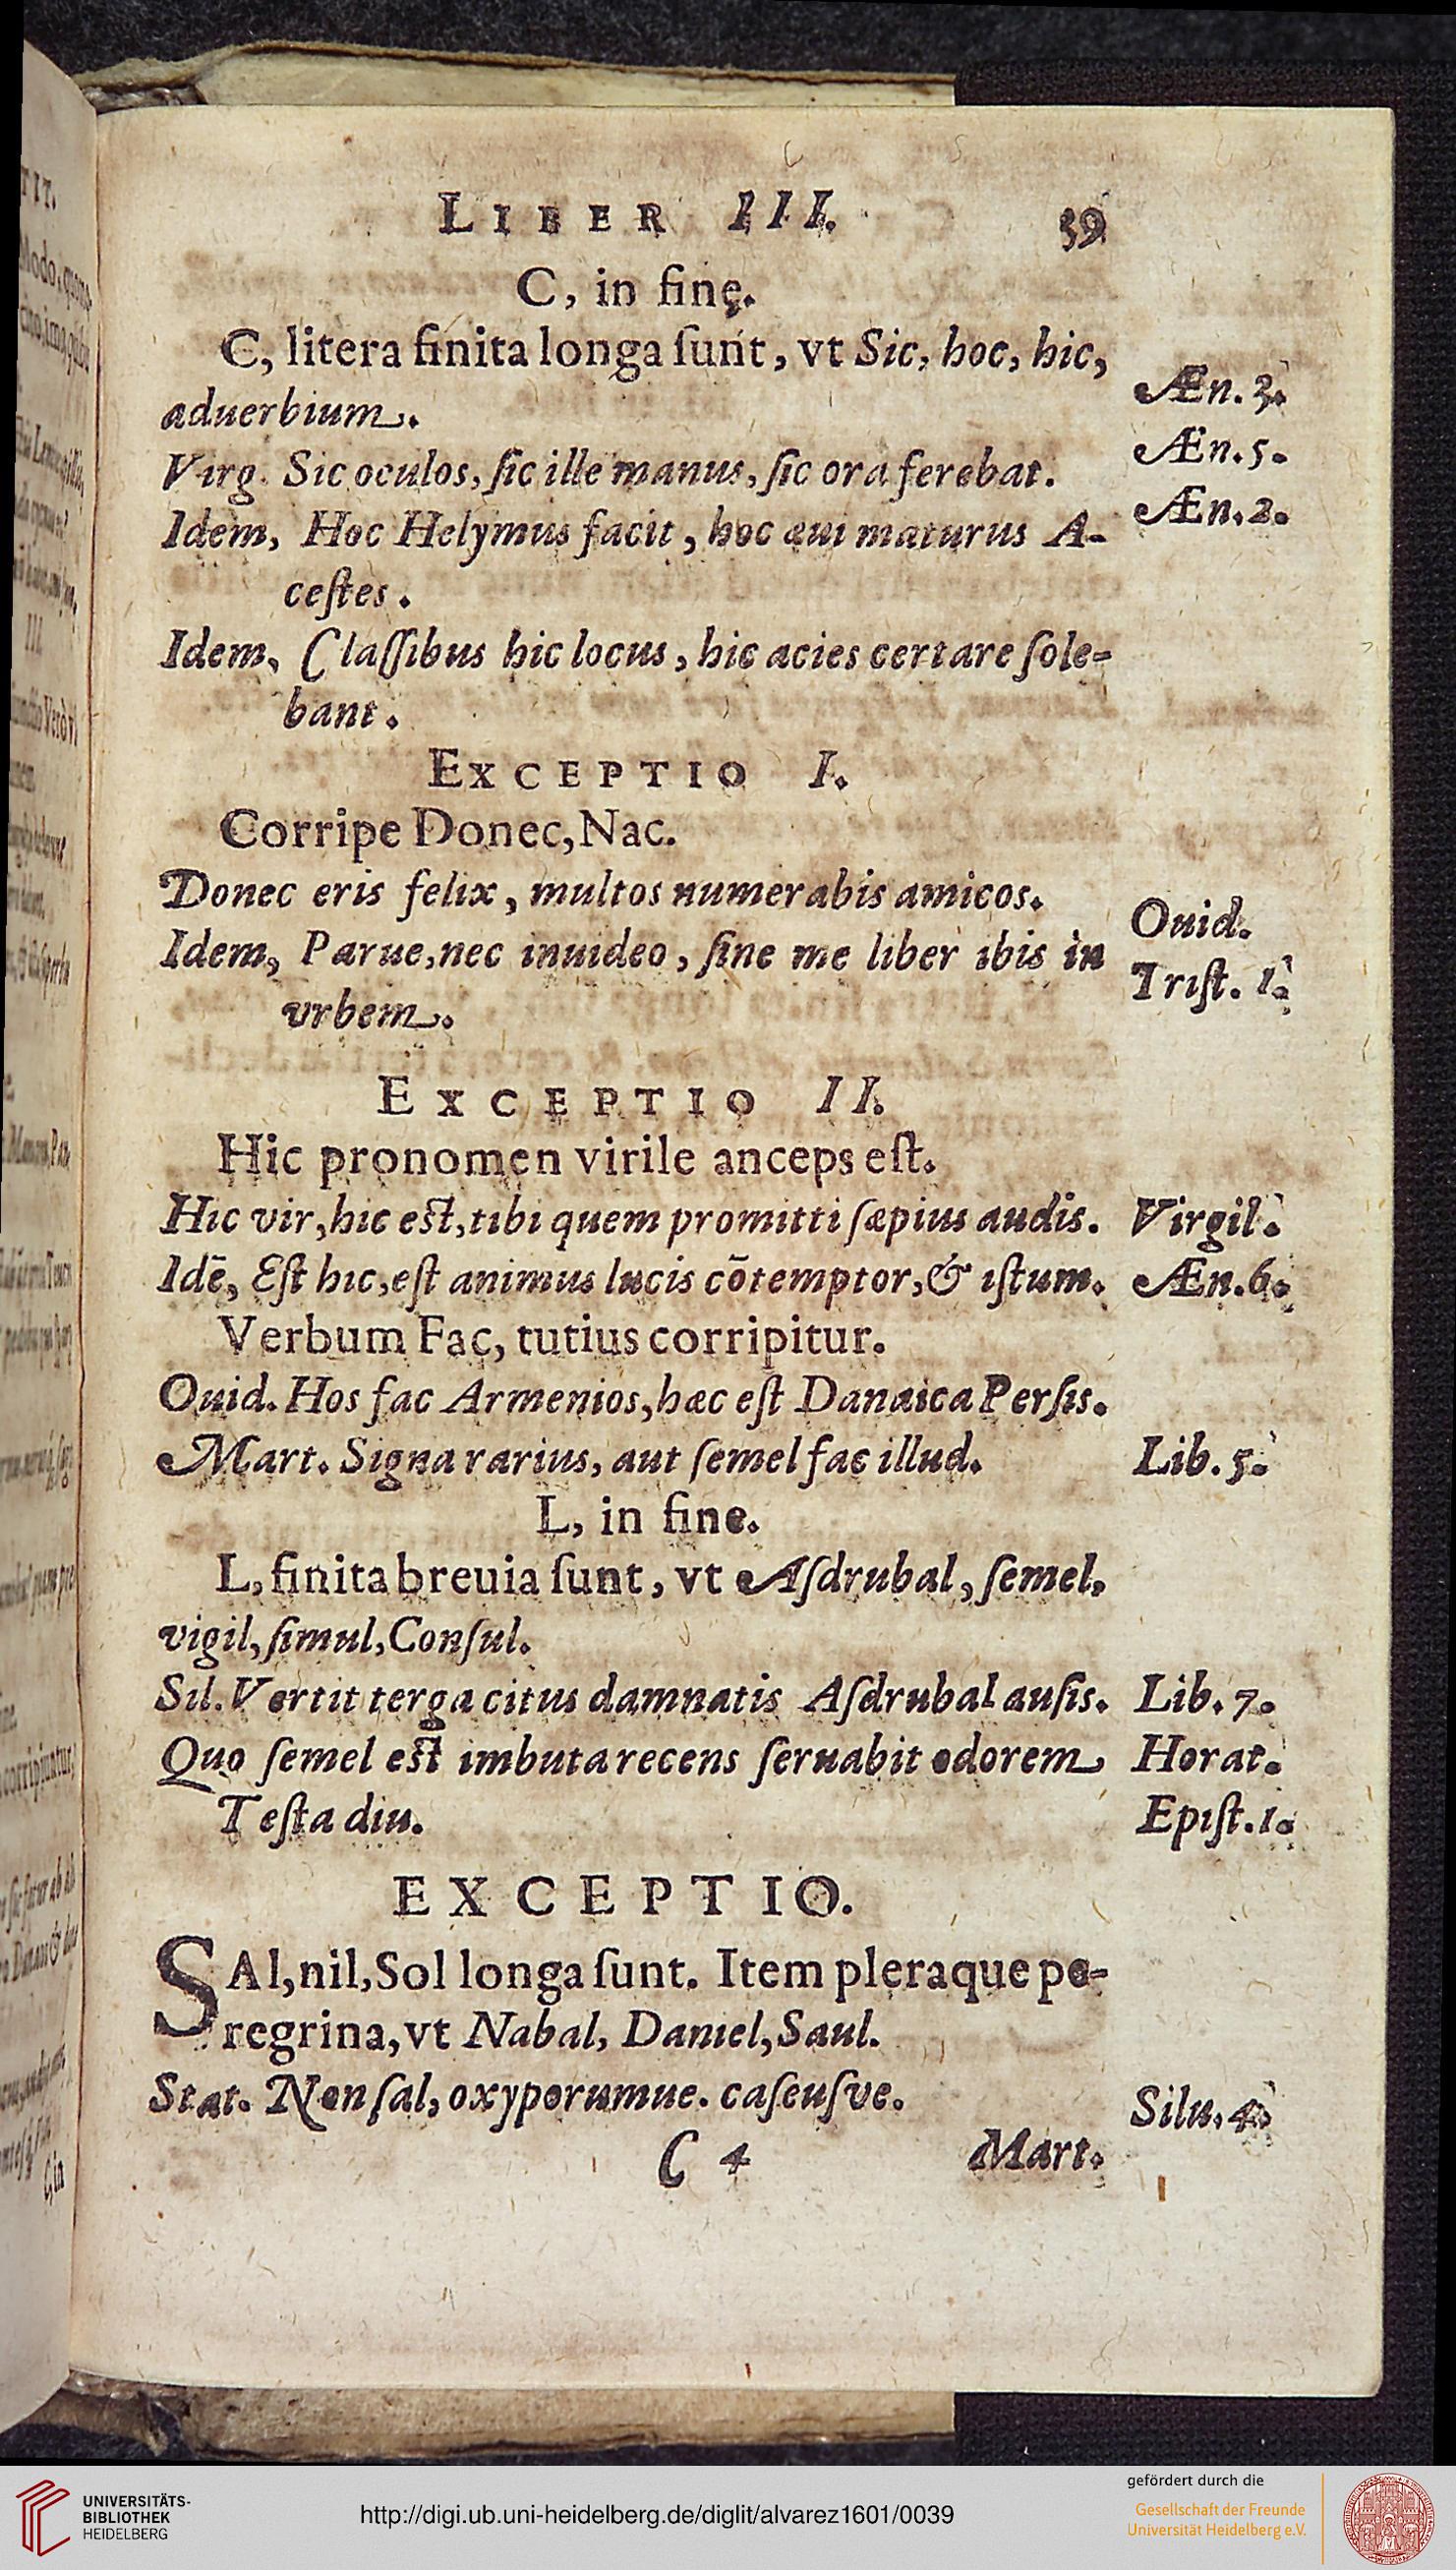 LIBER III. 39
C, in fine.
C, litera finita longa ſunt, vt Sic, hoc, hic,
aduerbium.
Æn. 3.
Virg. Sic oculos, ſic ille manus, ſic ora ferebat.
Æn. 5.
Idem, Hoc Helymus facit, hoc æui maturus A-
Æn. 2.
ceſtes.
Idem, Claſſibus hic locus, hic acies certare ſole-
bant.
EXCEPTIO I.
Corripe Donec, Nac.
Donec eris felix, multos numerabis amicos.
Ouid.
Idem, Parue, nec inuideo, ſine me liber ibis in
Triſt. 1.
vrbem.
EXCEPTIO II.
Hic pronomen virile anceps eſt.
Hic vir, hic eſt, tibi quem promitti ſæpius audis. Virgil.
Idē, Eſt hic, eſt animus lucis cōtemptor, & iſtum. Æn. 6.
Verbum Fac, tutius corripitur.
Ouid. Hos fac Armenios, hæc eſt Danaica Perſis.
Mart. Signa rarius, aut ſemel fac illud. Lib. 5.
L, in fine.
L, finita breuia ſunt, vt Aſdrubal, ſemel,
vigil, ſimul, Conſul.
Sil. Vertit terga citus damnatis Aſdrubal auſis. Lib. 7.
Quo ſemel eſt imbuta recens ſeruabit odorem Horat.
Teſta diu. Epiſt. 1.
EXCEPTIO.
SAl, nil, Sol longa ſunt. Item pleraque pe-
regrina, vt Nabal, Daniel, Saul.
Stat. Non ſal, oxyporumue. caſeuſve.
Silu. 4.
C 4 Mart.
UNIVERSITÄTS-
BIBLIOTHEK
HEIDELBERG
http://digi.ub.uni-heidelberg.de/diglit/alvarez1601/0039
gefördert durch die
Gesellschaft der Freunde
Universität Heidelberg e.V.